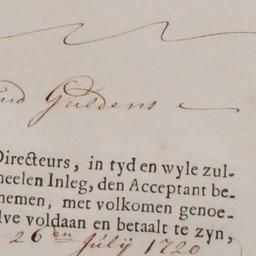 Guldens
Directeurs, in tyd en wyle zul-
heelen Inleg, den Acceptant be-
nemen, met volkomen genoe-
lve voldaan en betaalt te zyn,
26en July 1720